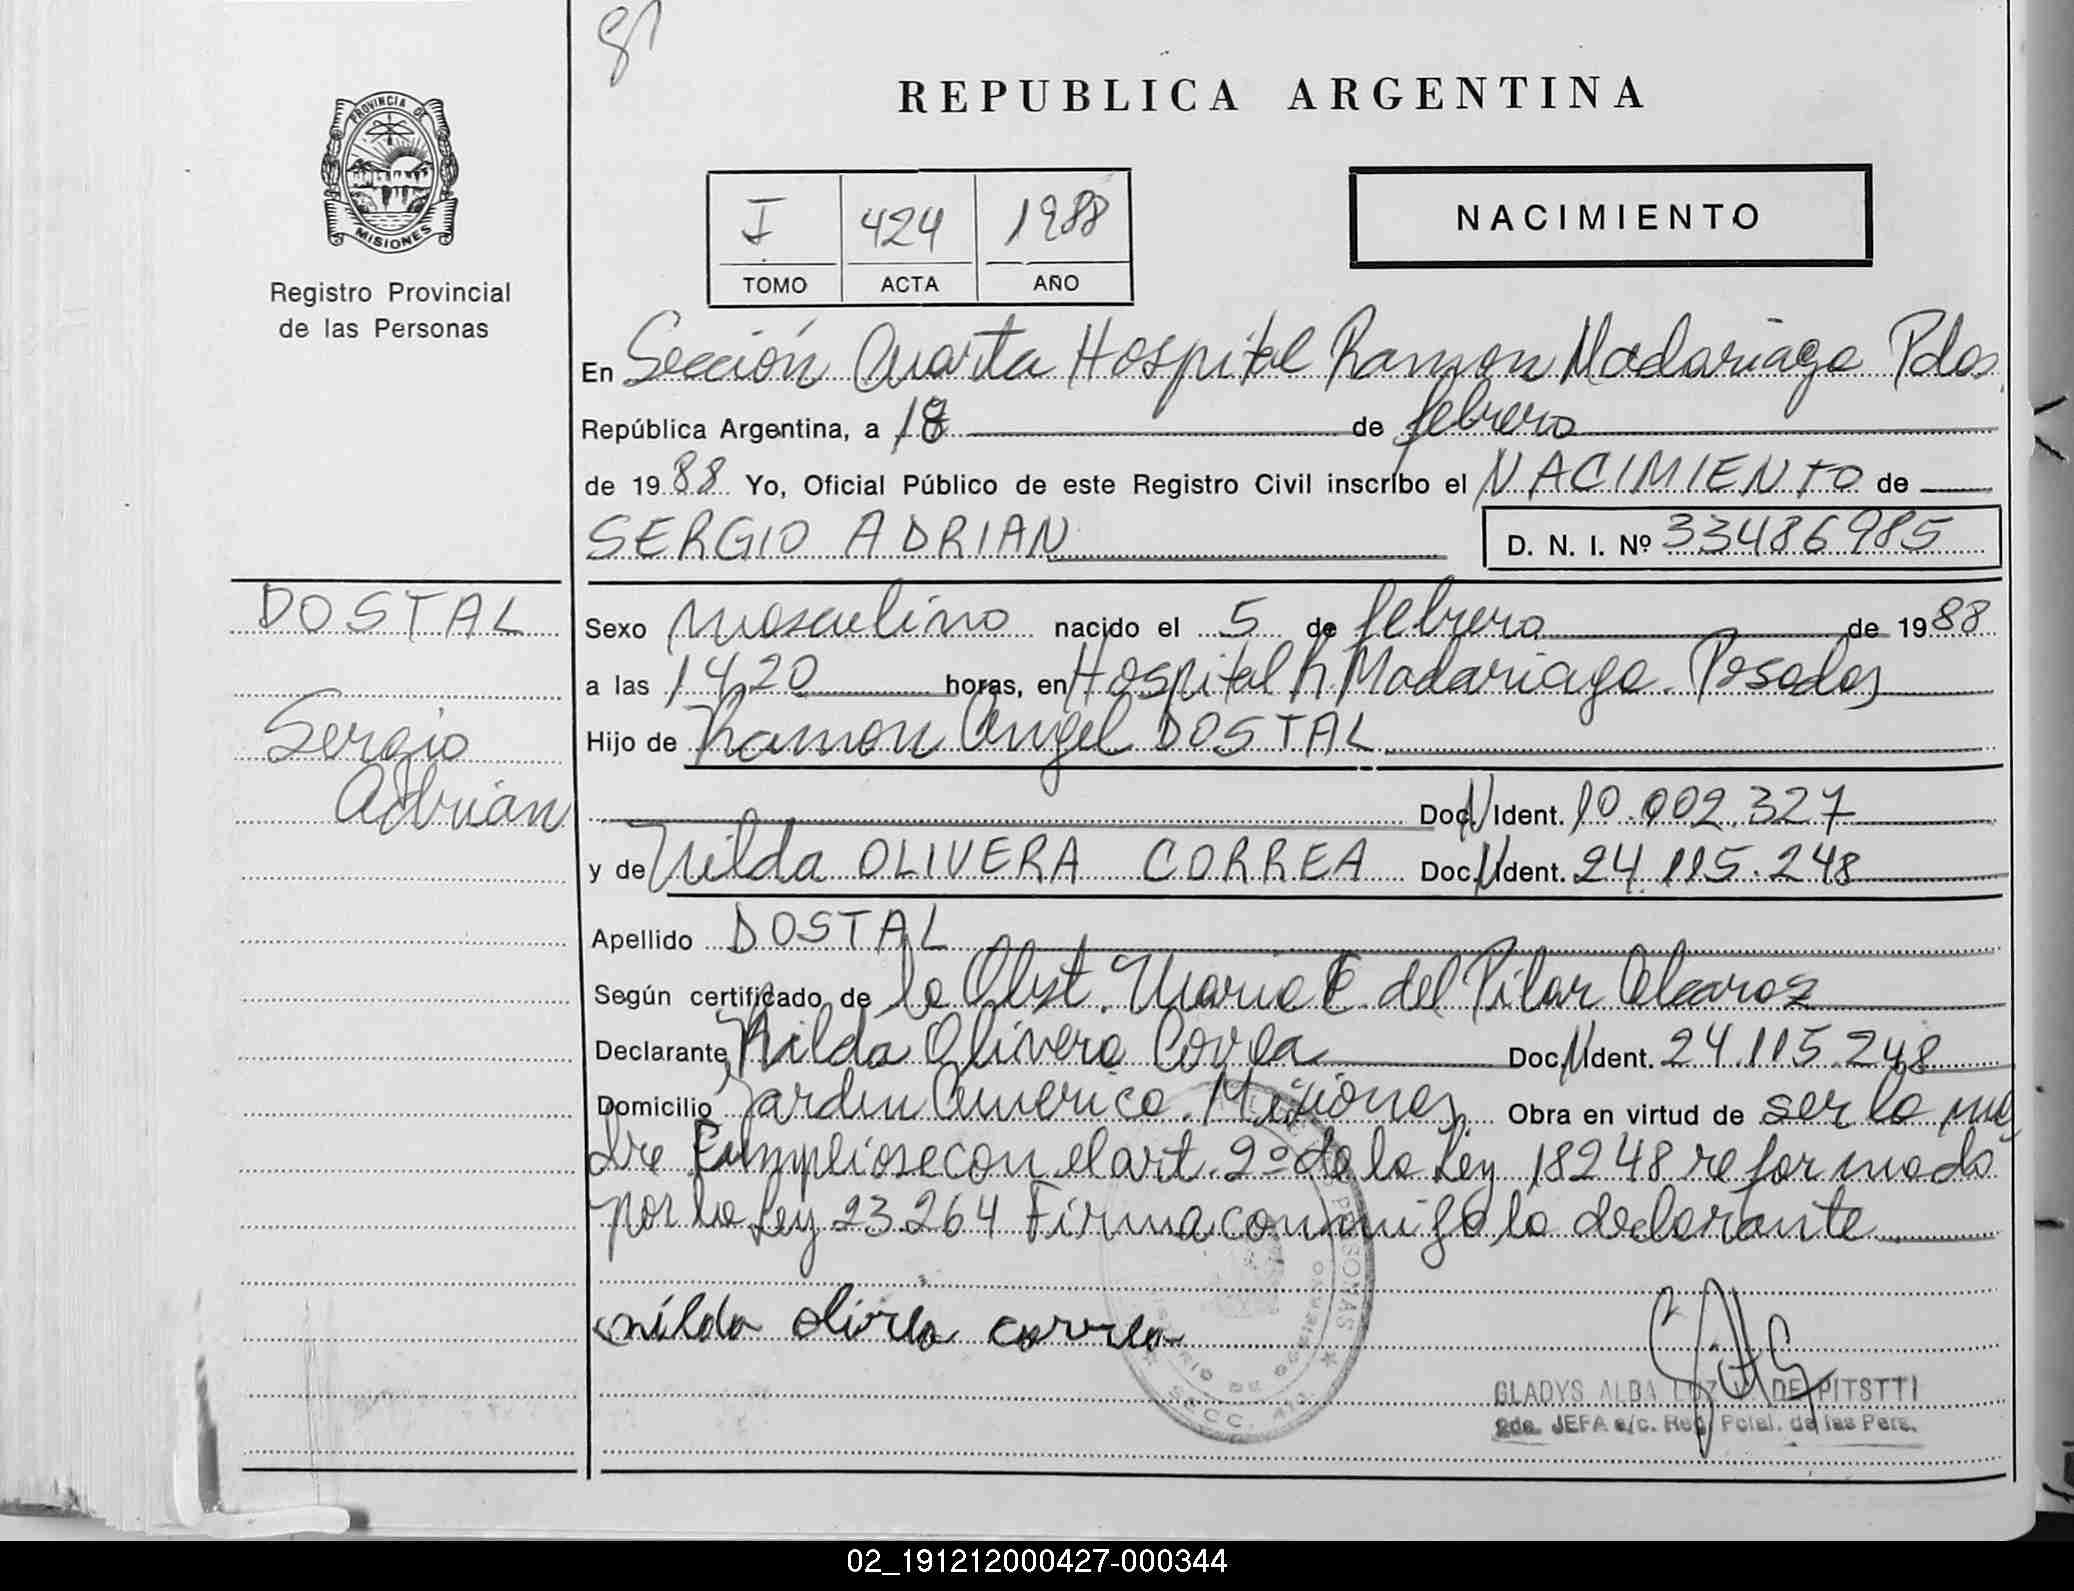 81
PROVINCIA DE
MISIONES
Registro Provincial
de las Personas
REPUBLICA ARGENTINA
I 424 1988
TOMO ACTA AÑO
NACIMIENTO
En Sección Cuarta Hospital Ramon Madariaga Pdas.
República Argentina, a 18 de febrero
de 1988 Yo, Oficial Público de este Registro Civil inscribo el NACIMIENTO de
SERGIO ADRIAN D. N. I. Nº 33486985
DOSTAL
Sergio
Adrian
Sexo masculino nacido el 5 de febrero de 1988
a las 14,20 horas, en Hospital R Madariaga. Posadas
Hijo de Ramon Angel DOSTAL
Doc. N Ident. 10.002.327
y de Nilda OLIVERA CORREA Doc. N Ident. 24.115.248
Apellido DOSTAL
Según certificado de la Obst. Maria E del Pilar Alcaraz
Declarante Nilda Olivera Correa Doc. N Ident. 24.115.248
Domicilio Jardin America. Misiones Obra en virtud de ser la ma
dre Cumpliose con el art. 2º de la Ley 18248 reformado
por la Ley 23.264 Firma conmigo la declarante
nilda olivera correa
GLADYS ALBA LUZ V. DE PITSTTI
2da. JEFA a/c. Reg. Pcial. de las Pers.
PERSONAS
SECC. 4ta.
02_191212000427-000344